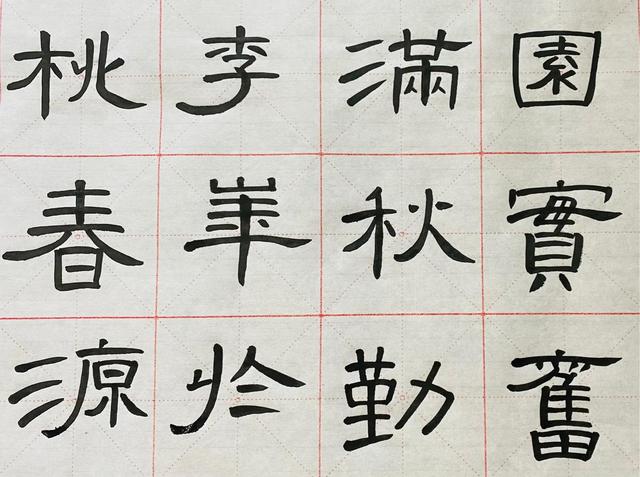 桃李滿園
春華秋實
源於勤奮